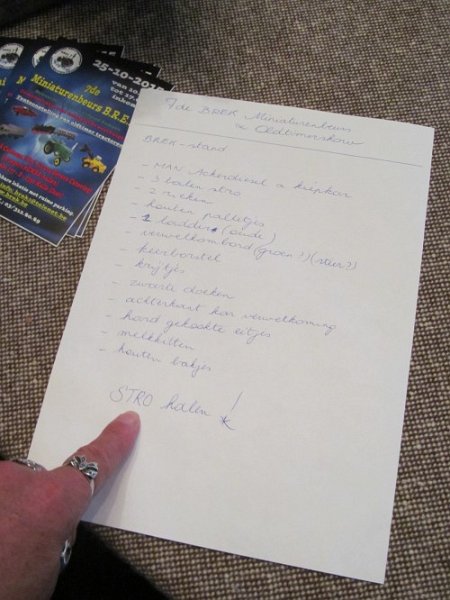 25-10-201
van 10.
tot 17.
inkom
7de
Miniaturenbeurs B.R.E.
7de BREK Miniaturenbeurs
& Oldtimershow
BREK-stand
- MAN Ackerdiesel + kiepkar
- 3 balen stro
- 2 rieken
- houten palletjes
- 2 ladders (oude)
- verwelkombord (groen?) (stier?)
- keerborstel
- krijtjes
- zwarte doeken
- achterkant kar verwelkoming
- hard gekookte eitjes
- melkkitten
- houten bakjes
STRO halen !